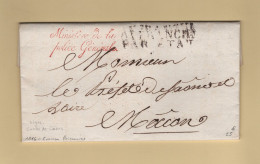 Ministère de la
police Générale
AFFRANCHI
PAR ETAT
Monsieur
le Préfet de Saône et
Loire
Macon